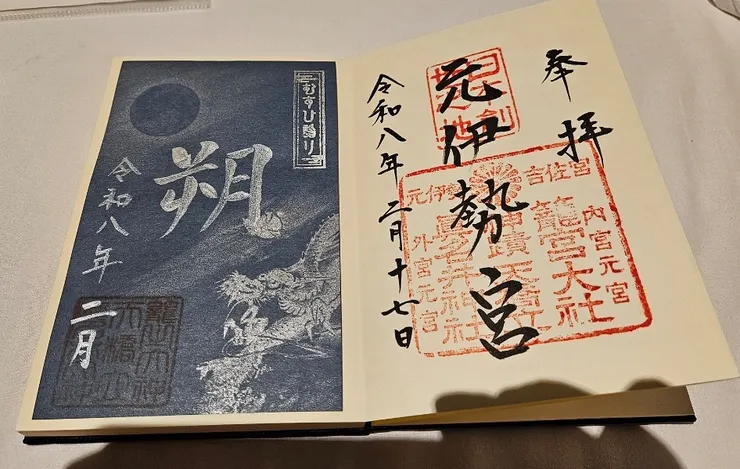 奉拝
元伊勢宮
令和八年二月十七日
元伊勢
吉佐宮
内宮元宮
籠宮大社
眞名井神社
外宮元宮
むすひ詣り
朔
令和八年
二月